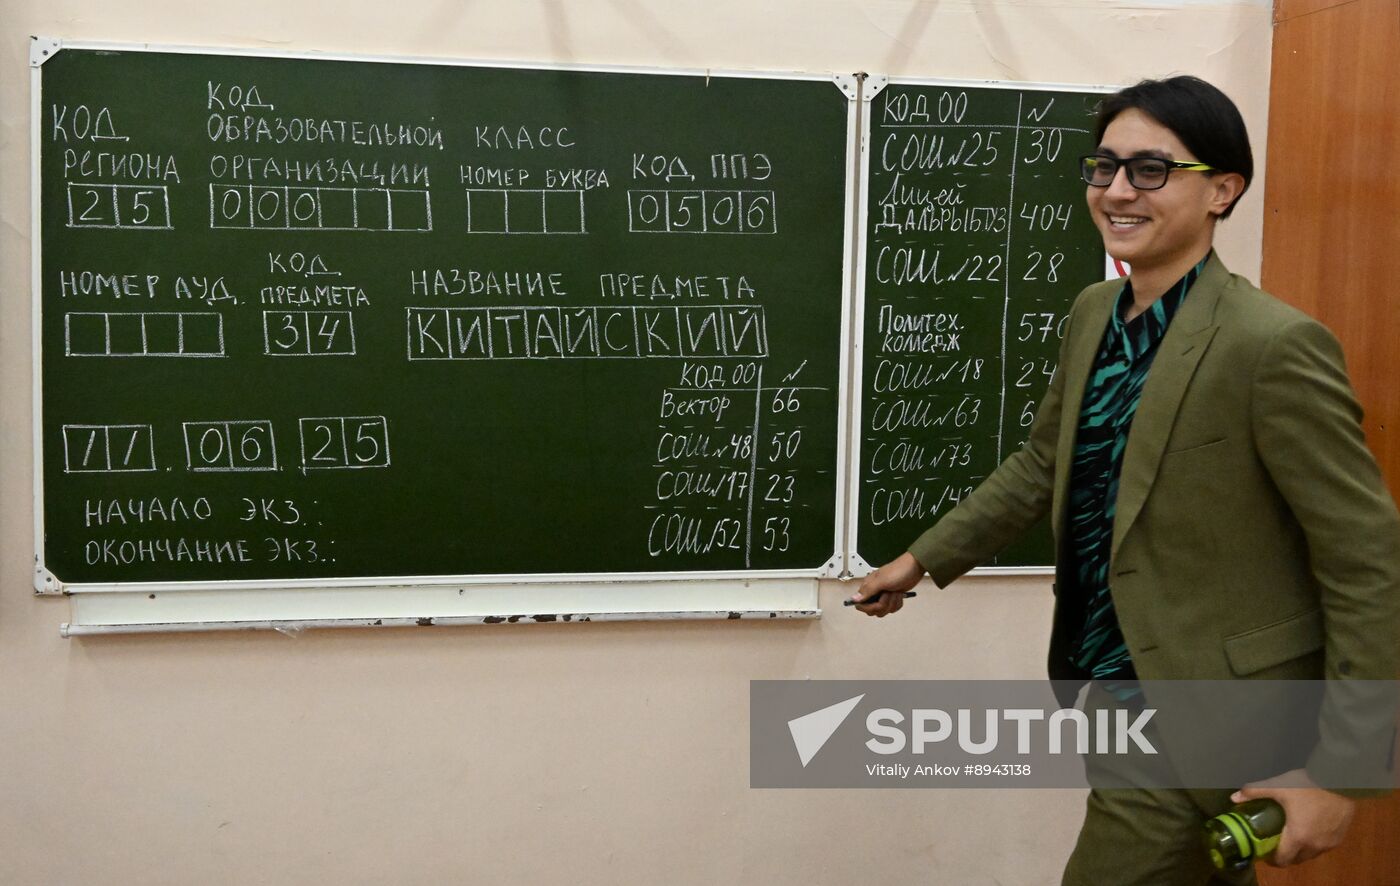 КОД РЕГИОНА
25
КОД ОБРАЗОВАТЕЛЬНОЙ ОРГАНИЗАЦИИ
000
КЛАСС
НОМЕР БУКВА
КОД ППЭ
0506
НОМЕР АУД.
КОД ПРЕДМЕТА
34
НАЗВАНИЕ ПРЕДМЕТА
КИТАЙСКИЙ
11.06.25
НАЧАЛО ЭКЗ.:
ОКОНЧАНИЕ ЭКЗ.:
КОД ОО N
Вектор 66
СОШ N48 50
СОШ N17 23
СОШ N52 53
КОД ОО N
СОШ N25 30
Лицей ДАЛЬРЫБТУЗ 404
СОШ N22 28
Политех. колледж 570
СОШ N18 24
СОШ N63 6
СОШ N73
СОШ N43
SPUTNIK
Vitaliy Ankov #8943138